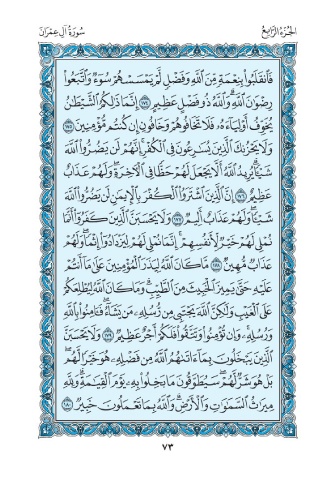 الجزء الرابع سورة آل عمران
فَٱنقَلَبُوا۟ بِنِعْمَةٍ مِّنَ ٱللَّهِ وَفَضْلٍ لَّمْ يَمْسَسْهُمْ سُوٓءٌ وَٱتَّبَعُوا۟
رِضْوَٰنَ ٱللَّهِ ۗ وَٱللَّهُ ذُو فَضْلٍ عَظِيمٍ ١٧٤ إِنَّمَا ذَٰلِكُمُ ٱلشَّيْطَٰنُ
يُخَوِّفُ أَوْلِيَآءَهُۥ فَلَا تَخَافُوهُمْ وَخَافُونِ إِن كُنتُم مُّؤْمِنِينَ ١٧٥
وَلَا يَحْزُنكَ ٱلَّذِينَ يُسَٰرِعُونَ فِى ٱلْكُفْرِ ۚ إِنَّهُمْ لَن يَضُرُّوا۟ ٱللَّهَ
شَيْـًٔا ۗ يُرِيدُ ٱللَّهُ أَلَّا يَجْعَلَ لَهُمْ حَظًّا فِى ٱلْـَٔاخِرَةِ ۖ وَلَهُمْ عَذَابٌ
عَظِيمٌ ١٧٦ إِنَّ ٱلَّذِينَ ٱشْتَرَوُا۟ ٱلْكُفْرَ بِٱلْإِيمَٰنِ لَن يَضُرُّوا۟ ٱللَّهَ
شَيْـًٔا وَلَهُمْ عَذَابٌ أَلِيمٌ ١٧٧ وَلَا يَحْسَبَنَّ ٱلَّذِينَ كَفَرُوٓا۟ أَنَّمَا
نُمْلِى لَهُمْ خَيْرٌ لِّأَنفُسِهِمْ ۚ إِنَّمَا نُمْلِى لَهُمْ لِيَزْدَادُوٓا۟ إِثْمًا ۚ وَلَهُمْ
عَذَابٌ مُّهِينٌ ١٧٨ مَّا كَانَ ٱللَّهُ لِيَذَرَ ٱلْمُؤْمِنِينَ عَلَىٰ مَآ أَنتُمْ
عَلَيْهِ حَتَّىٰ يَمِيزَ ٱلْخَبِيثَ مِنَ ٱلطَّيِّبِ ۗ وَمَا كَانَ ٱللَّهُ لِيُطْلِعَكُمْ
عَلَى ٱلْغَيْبِ وَلَٰكِنَّ ٱللَّهَ يَجْتَبِى مِن رُّسُلِهِۦ مَن يَشَآءُ ۖ فَـَٔامِنُوا۟ بِٱللَّهِ
وَرُسُلِهِۦ ۚ وَإِن تُؤْمِنُوا۟ وَتَتَّقُوا۟ فَلَكُمْ أَجْرٌ عَظِيمٌ ١٧٩ وَلَا يَحْسَبَنَّ
ٱلَّذِينَ يَبْخَلُونَ بِمَآ ءَاتَىٰهُمُ ٱللَّهُ مِن فَضْلِهِۦ هُوَ خَيْرًا لَّهُم ۖ
بَلْ هُوَ شَرٌّ لَّهُمْ ۖ سَيُطَوَّقُونَ مَا بَخِلُوا۟ بِهِۦ يَوْمَ ٱلْقِيَٰمَةِ ۗ وَلِلَّهِ
مِيرَٰثُ ٱلسَّمَٰوَٰتِ وَٱلْأَرْضِ ۗ وَٱللَّهُ بِمَا تَعْمَلُونَ خَبِيرٌ ١٨٠
٧٣